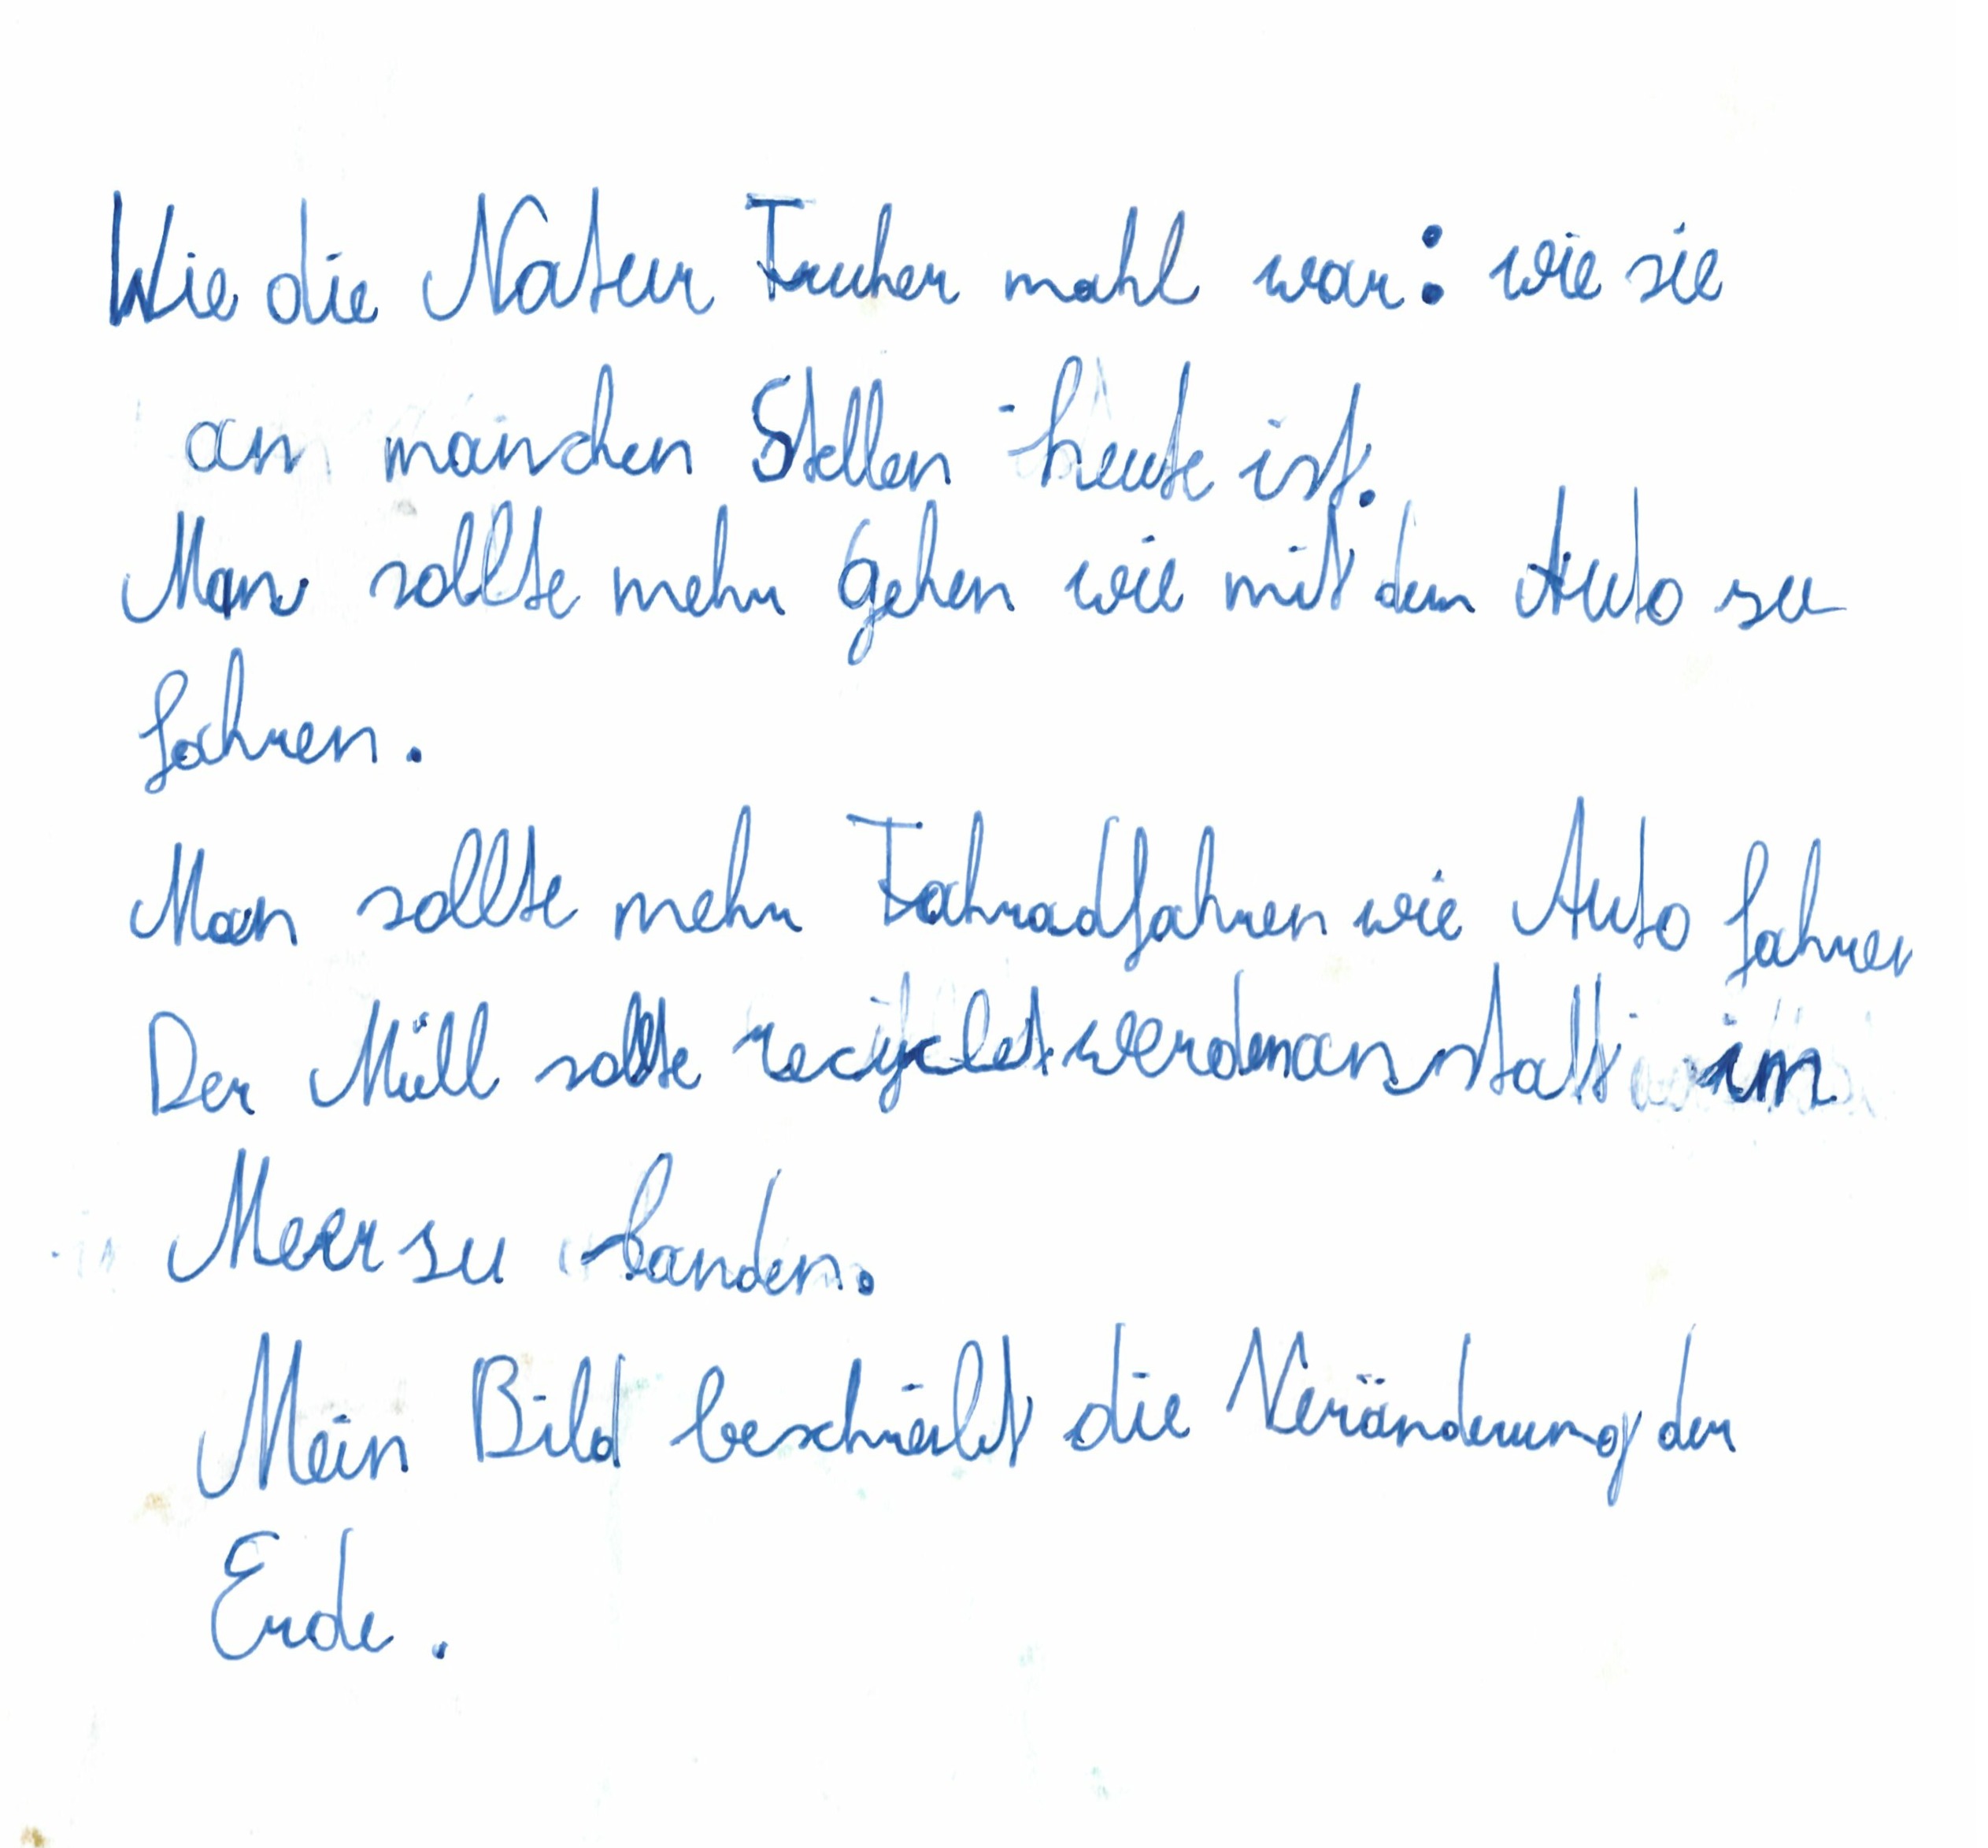 Wie die Natur Fruher mahl war: wie sie
an manchen Stellen heute ist.
Man sollte mehr gehen wie mit dem Auto zu
fahren.
Man sollte mehr Fahradfahren wie Auto fahren
Der Müll sollte recyclet werden anstatt im
Meer zu landen.
Mein Bild beschreibt die Veränderung der
Erde.